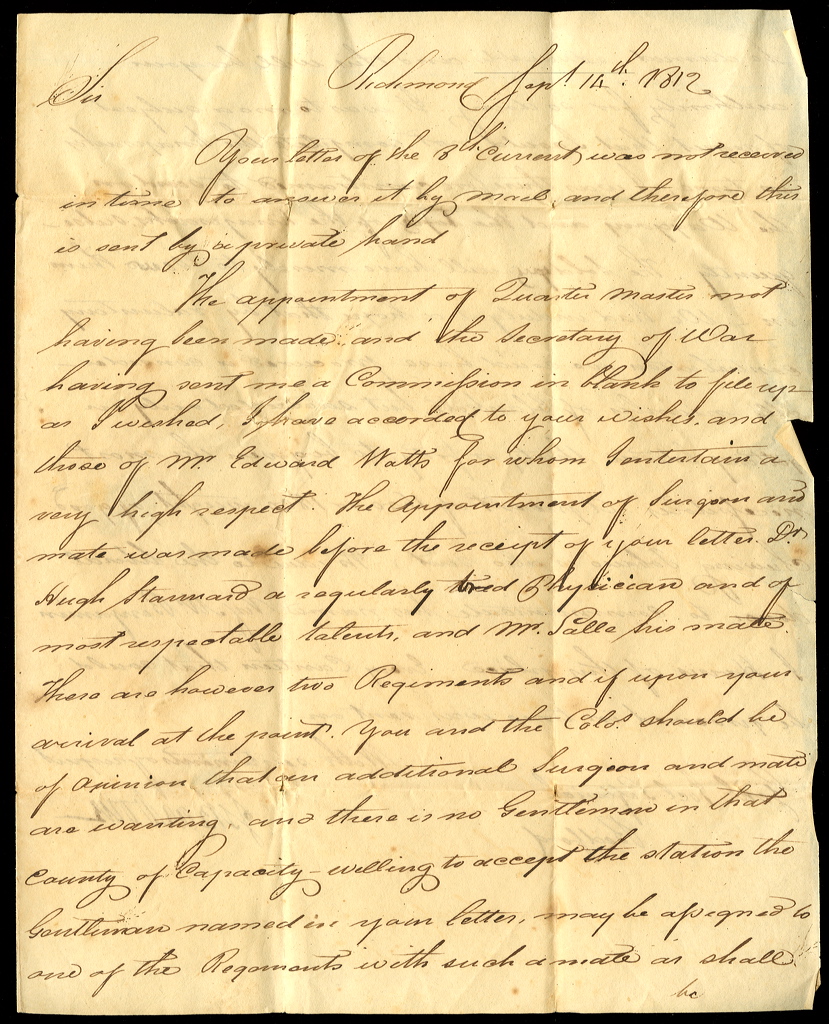 Richmond Sept. 14th. 1812
Sir
Your letter of the 8th Current, was not received
in time to answer it by mail, and therefore this
is sent by a private hand
The appointment of Quarter Master not
having been made, and the Secretary of War
having sent me a Commission in blank to file up
as I wished, I have accorded to your wishes, and
those of Mr. Edward Watts for whom I entertain a
very high respect. The Appointment of Surgeon and
mate was made before the receipt of your letter. Dr.
Hugh Stannard a regularly bred Physician and of
most respectable talents, and Mr. Salle his mate.
There are however two Regiments and if upon your
arrival at the point. You and the Colos. should be
of opinion that an additional Surgeon and mate
are wanting, and there is no Gentleman in that
County of Capacity willing to accept the station the
Gentleman named in your letter, may be assigned to
one of the Regoments with such a mate as shall
be